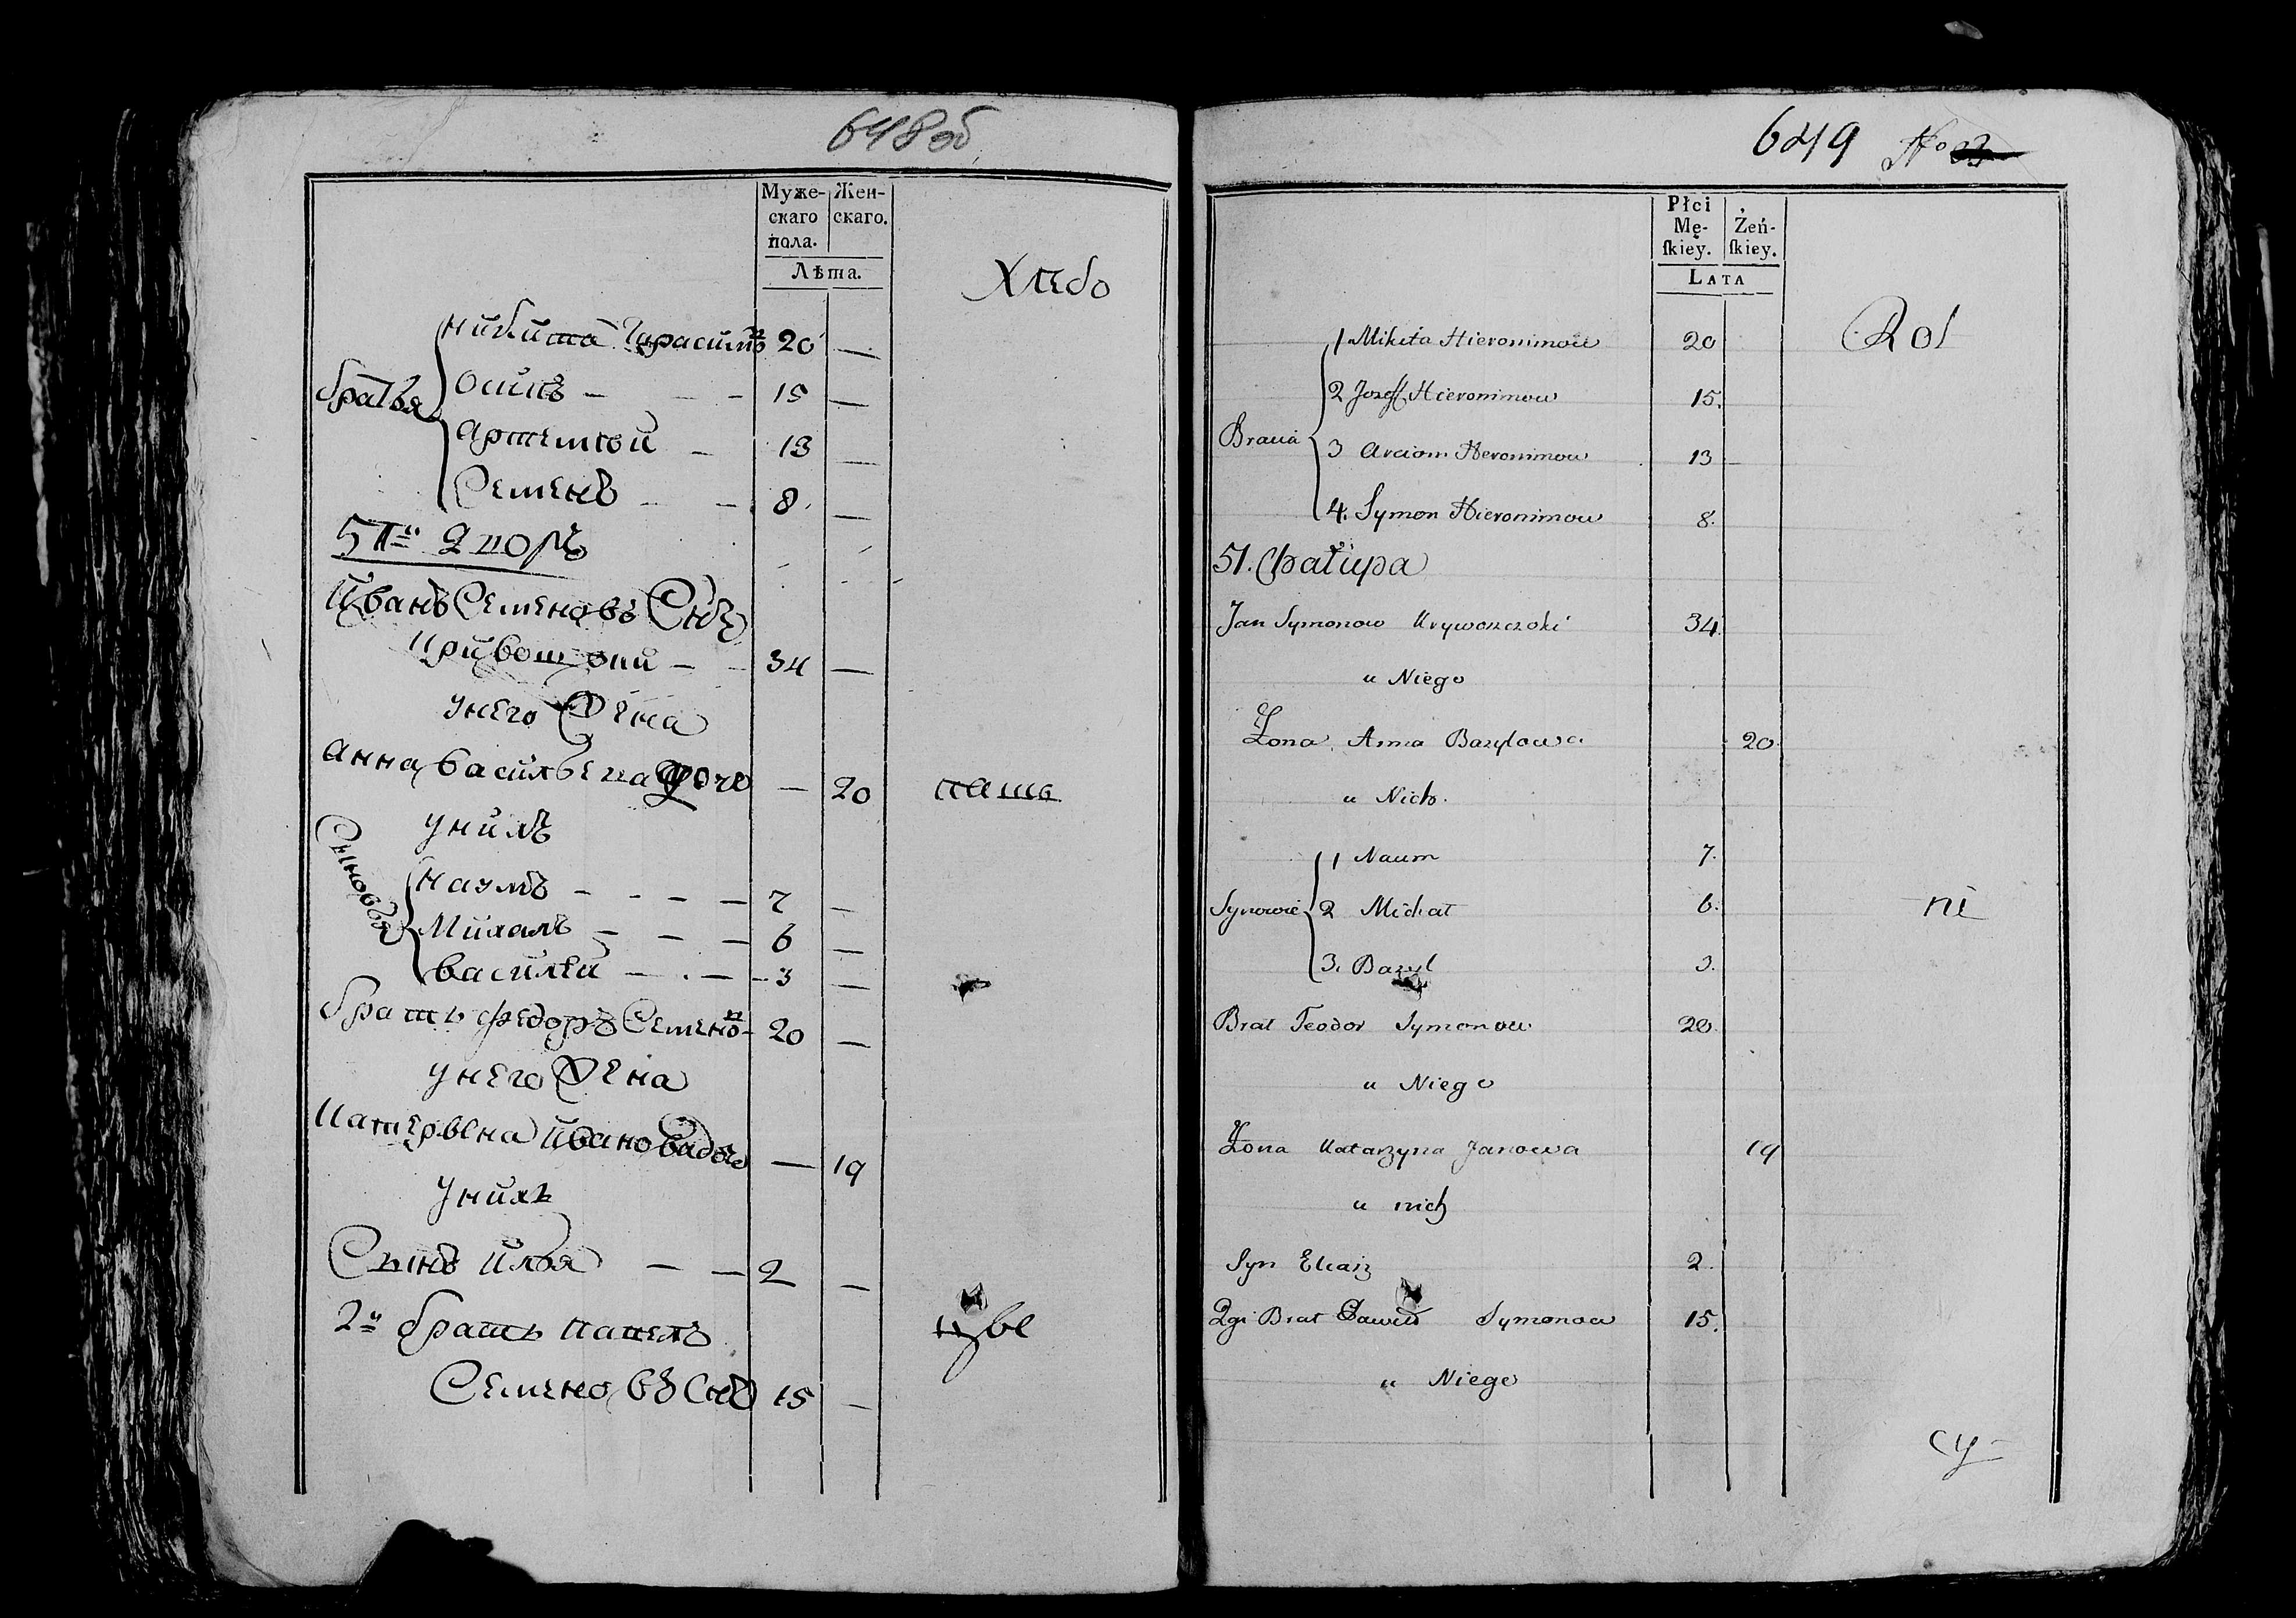 648об
Муже-
скаго
пола.
Жен-
скаго.
Лѣта.
Хлебо
Братья
Никита Гарасимов 20 —
Осипъ — 15 —
Артемкои — 13 —
Семенъ — 8 —
51й Дворъ
Иванъ Семеновъ Снъ
Кривошоии — 34 —
унего Жена
Анна Васильева дочь — 20
пашъ
унихъ
Сыновья
Наумъ — 7 —
Михалъ — 6 —
Василеи — 3 —
братъ Федоръ Семенов 20 —
унего Жена
Катерѣена Иванова доч — 19
унихъ
Сынъ Илья — 2 —
2й братъ Павелъ
цве
Семеновъ Снъ 15 —
649 No
Płci
Mę-
ſkiey.
Żeń-
ſkiey.
LATA
Rol
Bracia
1 Mikita Hieronimow 20
2 Jozeff Hieronimow 15.
3 Arciom Heronimow 13
4. Symon Hieronimow 8.
51. Chałupa
Jan Symonow Krywoszoki 34.
u Niego
Żona Anna Bazylowa 20
u Nich.
Synowie
1 Naum 7.
2 Michał 6.
ni
3. Bazyl 3.
Brat Teodor Symonow 20.
u Niego
Żona Katarzyna Janowa 19
u nich
Syn Eliasz 2.
2gi Brat Dawid Symonow 15.
u Niego
cy-